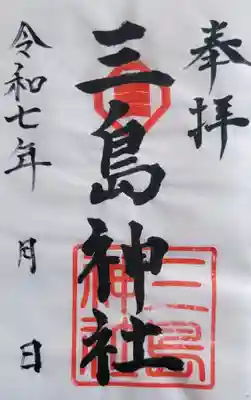 奉拝
三島神社
三島神社
令和七年 月 日